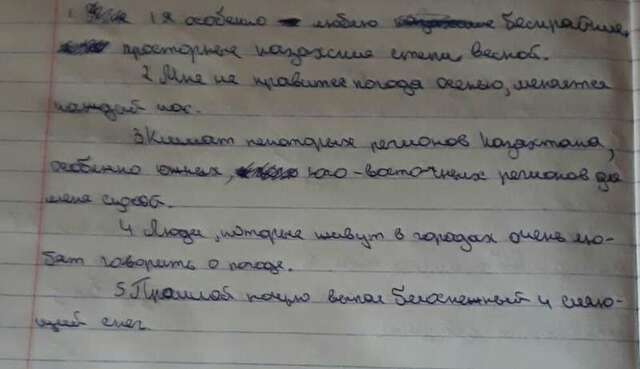 1 Я особенно люблю бескрайние,
просторные казахские степи весной.
2 Мне не нравится погода осенью, меняется
каждый час.
3 Климат некоторых регионов Казахтана,
особенно южных, юго-восточных регионов для
меня
4 Люди, которые живут в городах очень лю-
бят говорить о погоде.
5 Прошлой ночью выпал белоснежный и сияю-
щий снег